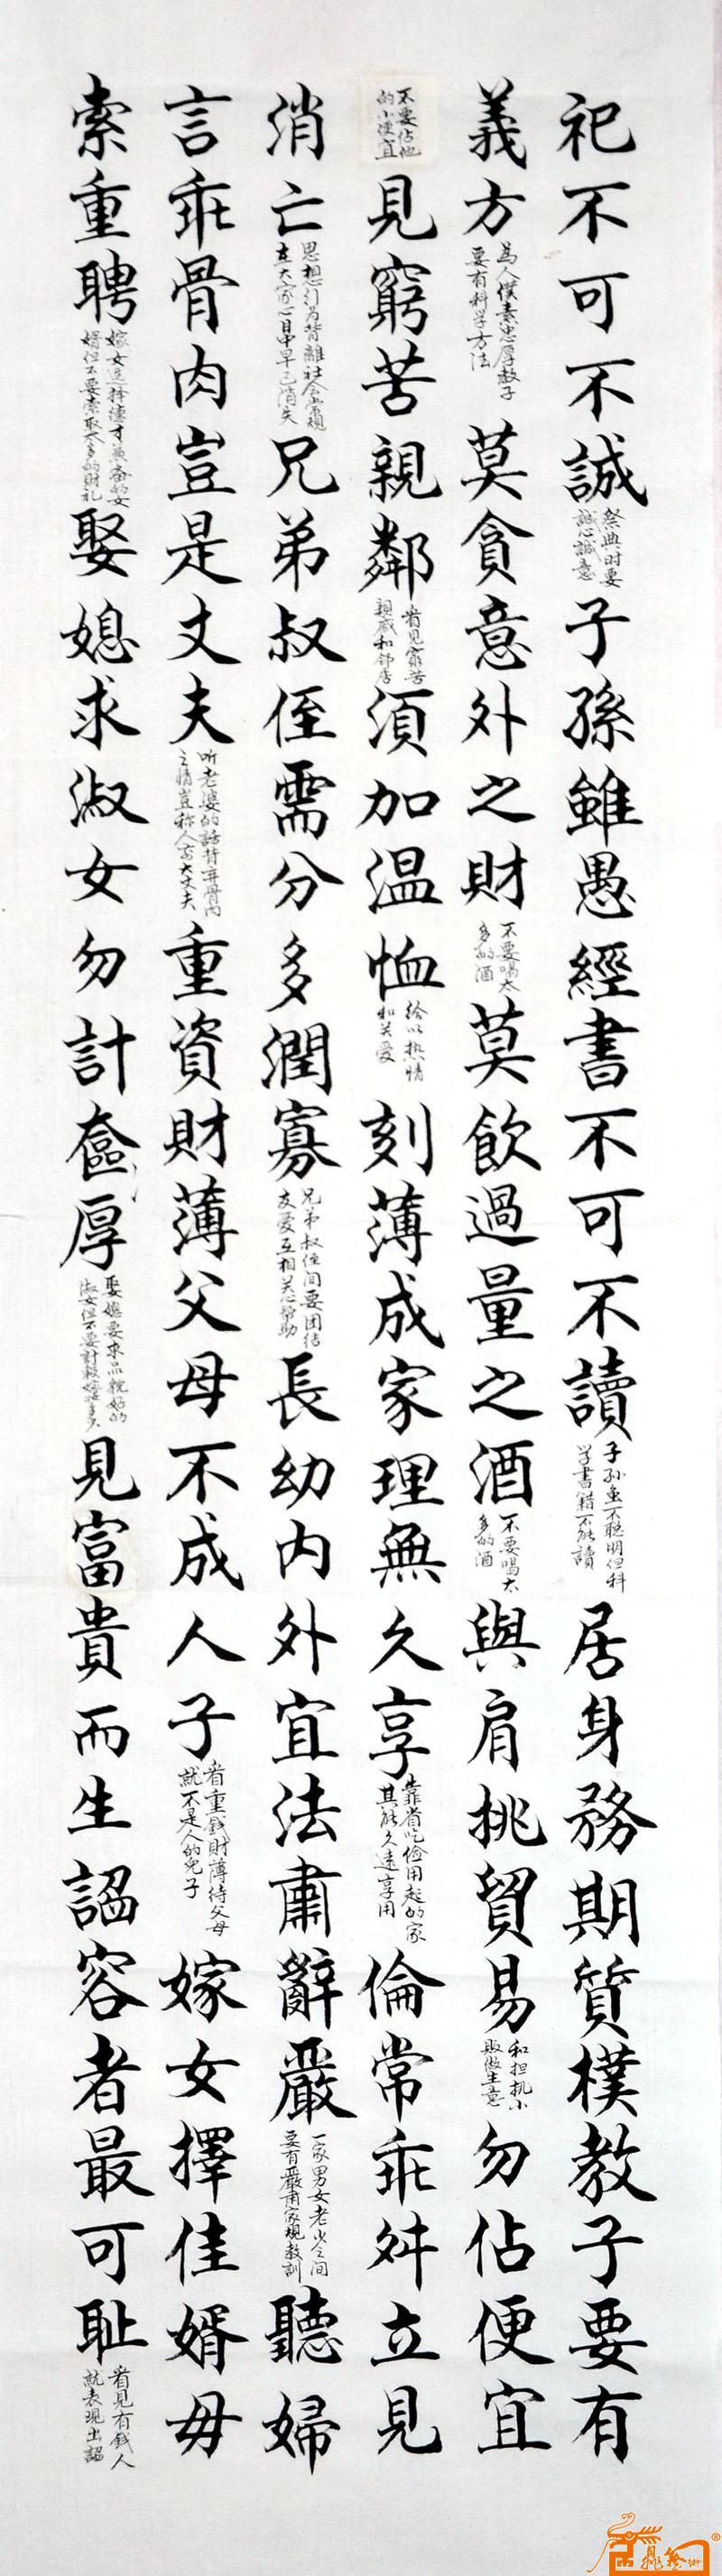 祀不可不誠祭典时要誠心誠意子孫雖愚經書不可不讀子孙虽不聪明但科学書籍不能讀居身務期質樸教子要有
義方為人僕素忠厚教子要有科学方法莫貪意外之財不要喝太多的酒莫飲過量之酒不要喝太多的酒與肩挑貿易和担挑小贩做生意勿佔便宜
不要佔他的小便宜見窮苦親鄰看见穷苦親戚和邻居須加温恤给以热情和关爱刻薄成家理無久享靠省吃俭用起的家其能久遠享用倫常乖舛立見
消亡思想行为背離社会常规在大家心目中早已消失兄弟叔侄需分多潤寡兄弟叔侄间要团结友爱互相关心帮助長幼内外宜法肅辭嚴一家男女老少之间要有嚴肃家规教訓聽婦
言乖骨肉豈是丈夫听老婆的話背弃骨肉之情豈称人家大丈夫重資財薄父母不成人子看重錢財薄待父母就不是人的兒子嫁女擇佳婿毋
索重聘嫁女选择德才兼备的女婿但不要索取太多的財礼娶媳求淑女勿計奩厚娶媳要求品貌好的淑女但不要計較嫁妆多少見富貴而生諂容者最可耻看見有錢人就表現出諂